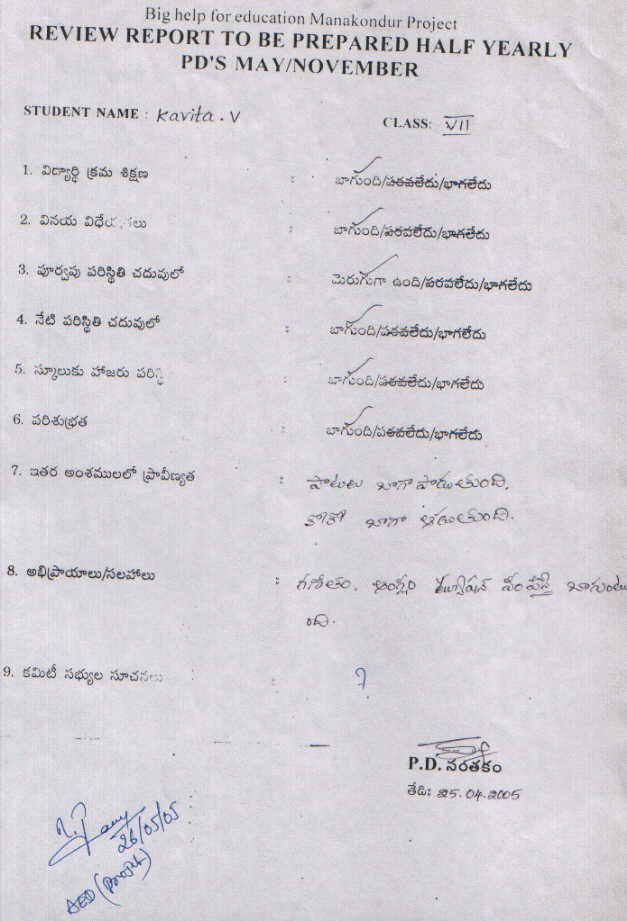 Big help for education Manakondur Project
REVIEW REPORT TO BE PREPARED HALF YEARLY
PD'S MAY/NOVEMBER
STUDENT NAME : Kavita . V
CLASS: VII
1. విద్యార్థి క్రమ శిక్షణ : బాగుంది/పరవలేదు/భాగలేదు
2. వినయ విధేయతలు : బాగుంది/పరవలేదు/భాగలేదు
3. పూర్వపు పరిస్థితి చదువులో : మెరుగుగా ఉంది/పరవలేదు/భాగలేదు
4. నేటి పరిస్థితి చదువులో : బాగుంది/పరవలేదు/భాగలేదు
5. స్కూలుకు హాజరు పరిస్థి : బాగుంది/పరవలేదు/భాగలేదు
6. పరిశుభ్రత : బాగుంది/పరవలేదు/భాగలేదు
7. ఇతర అంశములలో ప్రావీణ్యత : పాటలు బాగా పాడుతుంది.
కోకో బాగా ఆడుతుంది.
8. అభిప్రాయాలు/సలహాలు : గణితం, ఆంగ్లం ట్యూషన్ బాగుంటు
ంది.
9. కమిటీ సభ్యుల సూచనలు : ?
P.D. సంతకం
తేది: 25.04.2005
26/05/05
AED (